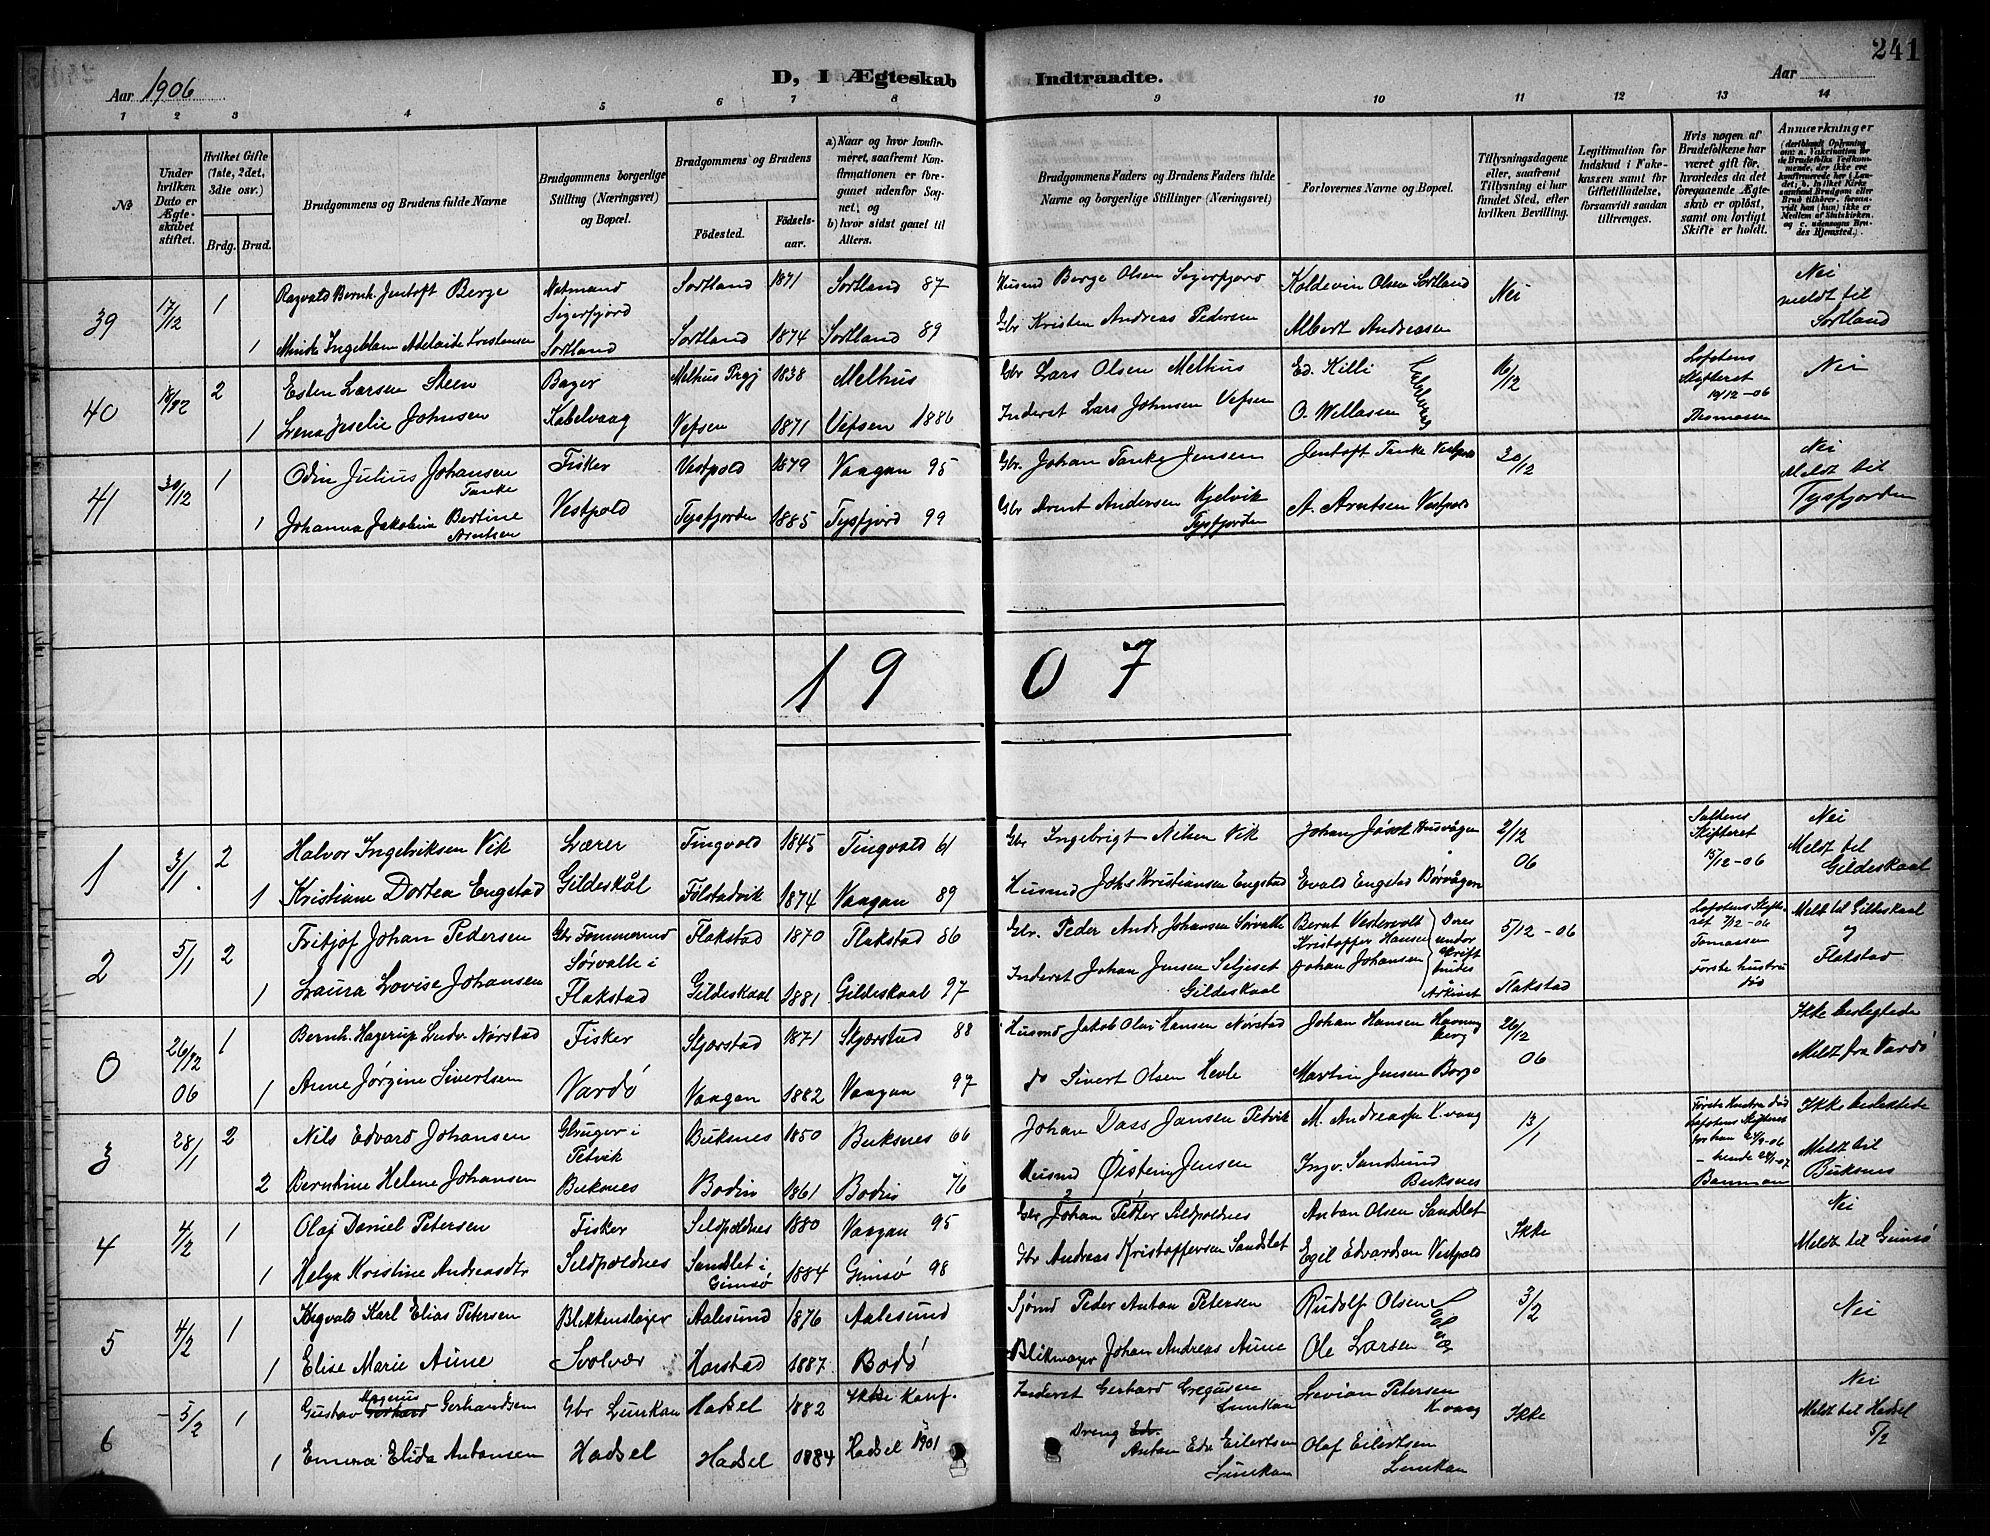 241
Aar 1906
D, I Ægteskab Indtraadte.
Aar
1 2 3 4 5 6 7 8 9 10 11 12 13 14
No
Under hvilken Dato er Ægteskabet stiftet.
Hvilket Gifte (1ste, 2det, 3die osv.)
Brdg. Brud.
Brudgommens og Brudens fulde Navne
Brudgommens borgerlige Stilling (Næringsvei) og Bopæl.
Brudgommens og Brudens
Fødested. Fødsels-aar.
a) Naar og hvor konfirmeret, saafremt Konfirmationen er foregaaet udenfor Sognet; og
b) hvor sidst gaaet til Alters.
Brudgommens Faders og Brudens Faders fulde Navne og borgerlige Stillinger (Næringsvei)
Forlovernes Navne og Bopæl.
Tillysningsdagene eller, saafremt Tillysning ei har fundet Sted, efter hvilken Bevilling.
Legitimation for Indskud i Fakrkassen samt for Giftetilladelse, forsaavidt saadan tiltrenges.
Hvis nogen af Brudefolkene har været gift før, hvorledes da det foregaaende Ægteskab er opløst, samt om lovligt Skifte er holdt.
Anmærkninger
39 17/12 1 Ragvald Bernh. Jentoft Berge Matmand Sigerfjord Sortland 1871 Sortland 87 Husmd Berge Olsen Sigerfjord Koldevin Olsen Sortland Nei Nei meldt til Sortland
1 Sortland Sortland 1874 Sortland 89 Gbr Kristen Andreas Pedersen Albert Andreasen
40 2 Esten Larsen Steen Bager Melhus Prgj 1838 Melhus Gbr Lars Olsen Melhus Ed. Killi 16/12 Lofotens Skifteret 10/12-06 Thomassen Nei
1 Lena Jeselie Johnsen Kabelvaag Vefsen 1871 Vefsen 1886 Inderst Lars Johnsen Vefsen O. Willasen
41 30/12 1 Odin Julius Johansen Tanke Fisker Vestpold 1879 Vaagan 95 Gbr. Johan Tanke Jensen Jentoft Tanke Vestpold 30/12 Nei Meldt til Tysfjorden
1 Johanna Jakobine Bertine Arntsen Vestpold Tysfjorden 1885 Tysfjord 99 Gbr Arnt Andersen Kjelvik Tysfjorden A. Arntsen Vestpold
1907
1 3/1. 2 Halvor Ingebriksen Vik Lærer Tingvold 1845 Tingvold 61 Gbr Ingebrigt Nilsen Vik Johan 2/12 06 Saltens Skifteret 15/12-06 Nei Meldt til Gildeskaal
1 Kristiane Dortea Engstad Gildeskål Følstadvik 1874 Vaagan 89 Husmd Johs Kristiansen Engstad Evald Engstad Børvågen
2 5/1 2 Fritjof Johan Pedersen Gbr Tømmermd Sørvalle i Flakstad 1870 Flakstad 86 Gbr. Peder Andr Johansen Sørvalle Bernt Kristoffer Hansen Johan Johansen Deres underskrift findes Arkivet 5/12-06 Flakstad Lofotens Skifteret 7/12-06 Tomassen Første hustru Meldt til Gildeskaal og Flakstad
1 Laura Lovise Johansen Flakstad Gildeskaal 1881 Gildeskaal 97 Inderst Johan Jensen Seljeset Gildeskaal
0 26/12 06 1 Bernh. Hagerup Ludv. Nørstad Fisker Skjerstad 1871 Skjerstad 88 Husmd Jakob Olai Hansen Nørstad Johan Hansen 26/12 06 Ikke Meldt fra Vardø
1 Anne Jørgine Sivertsen Vardø Vaagan 1882 Vaagan 97 do Sivert Olsen Hevle Martin Jensen
3 28/1 2 Nils Edvard Johansen Gbruger i Petvik Buksnes 1850 Buksnes 66 Johan Dass Jansen Petvik M. Andreassen Kvaag 13/1 Første Hustru Ikke Meldt til Buksnes
2 Berntine Helene Johansen Buksnes Bodin 1861 Bodin 76 Husmd Øistein Jensen Ingv. Sandsund Buksnes
4 4/2 1 Olaf Daniel Petersen Fisker Seldpoldnes 1880 Vaagan 95 Gbr Johan Petter Seldpoldnes Anton Olsen Sandslet Ikke Nei Meldt til Gimsø
1 Helga Kristine Andreasdtr Seldpoldnes Sandslet i Gimsø 1884 Gimsø 98 Gbr Andreas Kristoffersen Sandslet Egil Edvardsen Vestpold
5 4/2 1 Ragvald Karl Elias Petersen Blekkenslager Aalesund 1876 Aalesund Sjømd Peder Anton Petersen Rudolf Olsen 3/2 Nei
1 Elise Marie Aune Svolvær Harstad 1887 Bodø Blikmager Johan Andreas Aune Ole Larsen
6 5/2 1 Gustav Magnus Gerhardsen Gbr Lunkan Hadsel 1882 Ikke Konf. Inderst Gerhard Gregusen Lunkan Levian Petersen Kvaag Ikke Nei Meldt til Hadsel 5/2
1 Emma Elida Antonsen Hadsel Hadsel 1884 Hadsel 1901 Dreng Anton Edv Eilertsen Lunkan Olaf Eilertsen Lunkan